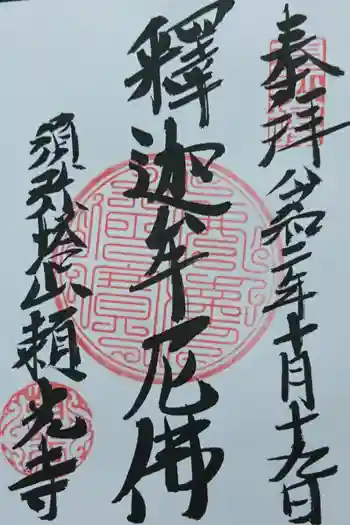 奉拝 令和二年十月十九日
釋迦牟尼佛
須弥塔山頼光寺